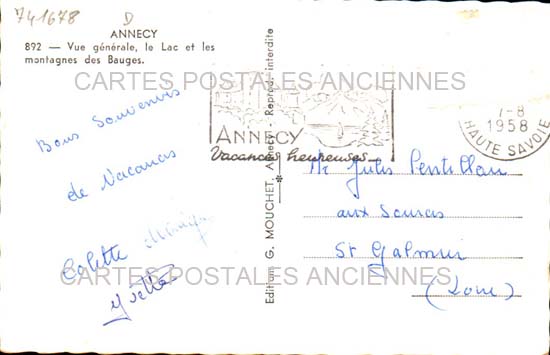 741678 D
ANNECY
892 — Vue générale, le Lac et les
montagnes des Bauges.
CARTES POSTALES ANCIENNES
ANNECY
Vacances heureuses
7-8
1958
HAUTE SAVOIE
Bons Souvenirs
de Vacances
Colette
Yvette
Edition G. MOUCHET, Annecy - Reprod. interdite
Mr Jules
aux Sources
St Galmier
(Loire)
CARTES POSTALES ANCIENNES